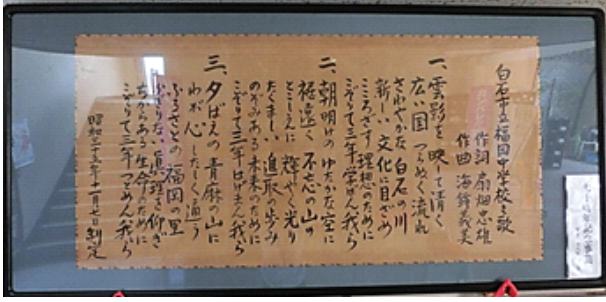 白石市立福岡中学校校歌
作詞 扇畑忠雄
作曲 海鋒義美
一、雲影を 映して清く
広い国 つらぬく流れ
さわやかな 白石の川
新しい 文化に目ざめ
こころざす 理想のために
こぞりて三年 学ばん我ら
二、朝明けの ゆたかな空に
裾遠く 不忘の山の
とこしえに 輝やく光り
たくまし 進取の歩み
のぞみある 未来のために
こぞりて三年 はげまん我ら
三、夕ばえの 青麻の山に
わが心 したしく通う
ふるさとの 福岡の里
真理を 仰ぎ
ちからある 生命のために
こぞりて三年 つとめん我ら
昭和三十五年十一月七日制定